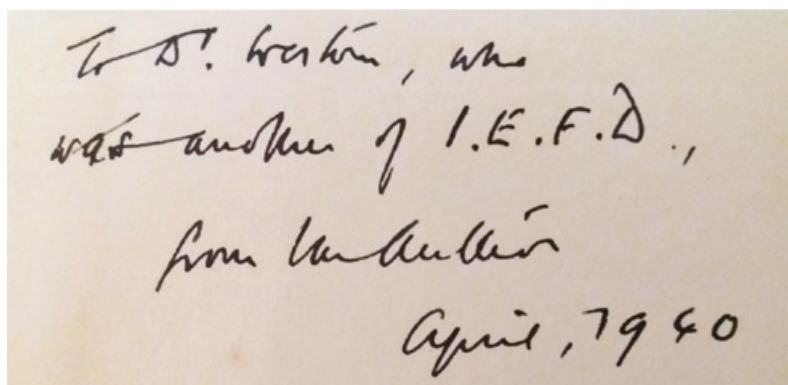 To Dr. Weston, who
was another of I.E.F.D.,
from the Author
April, 1940